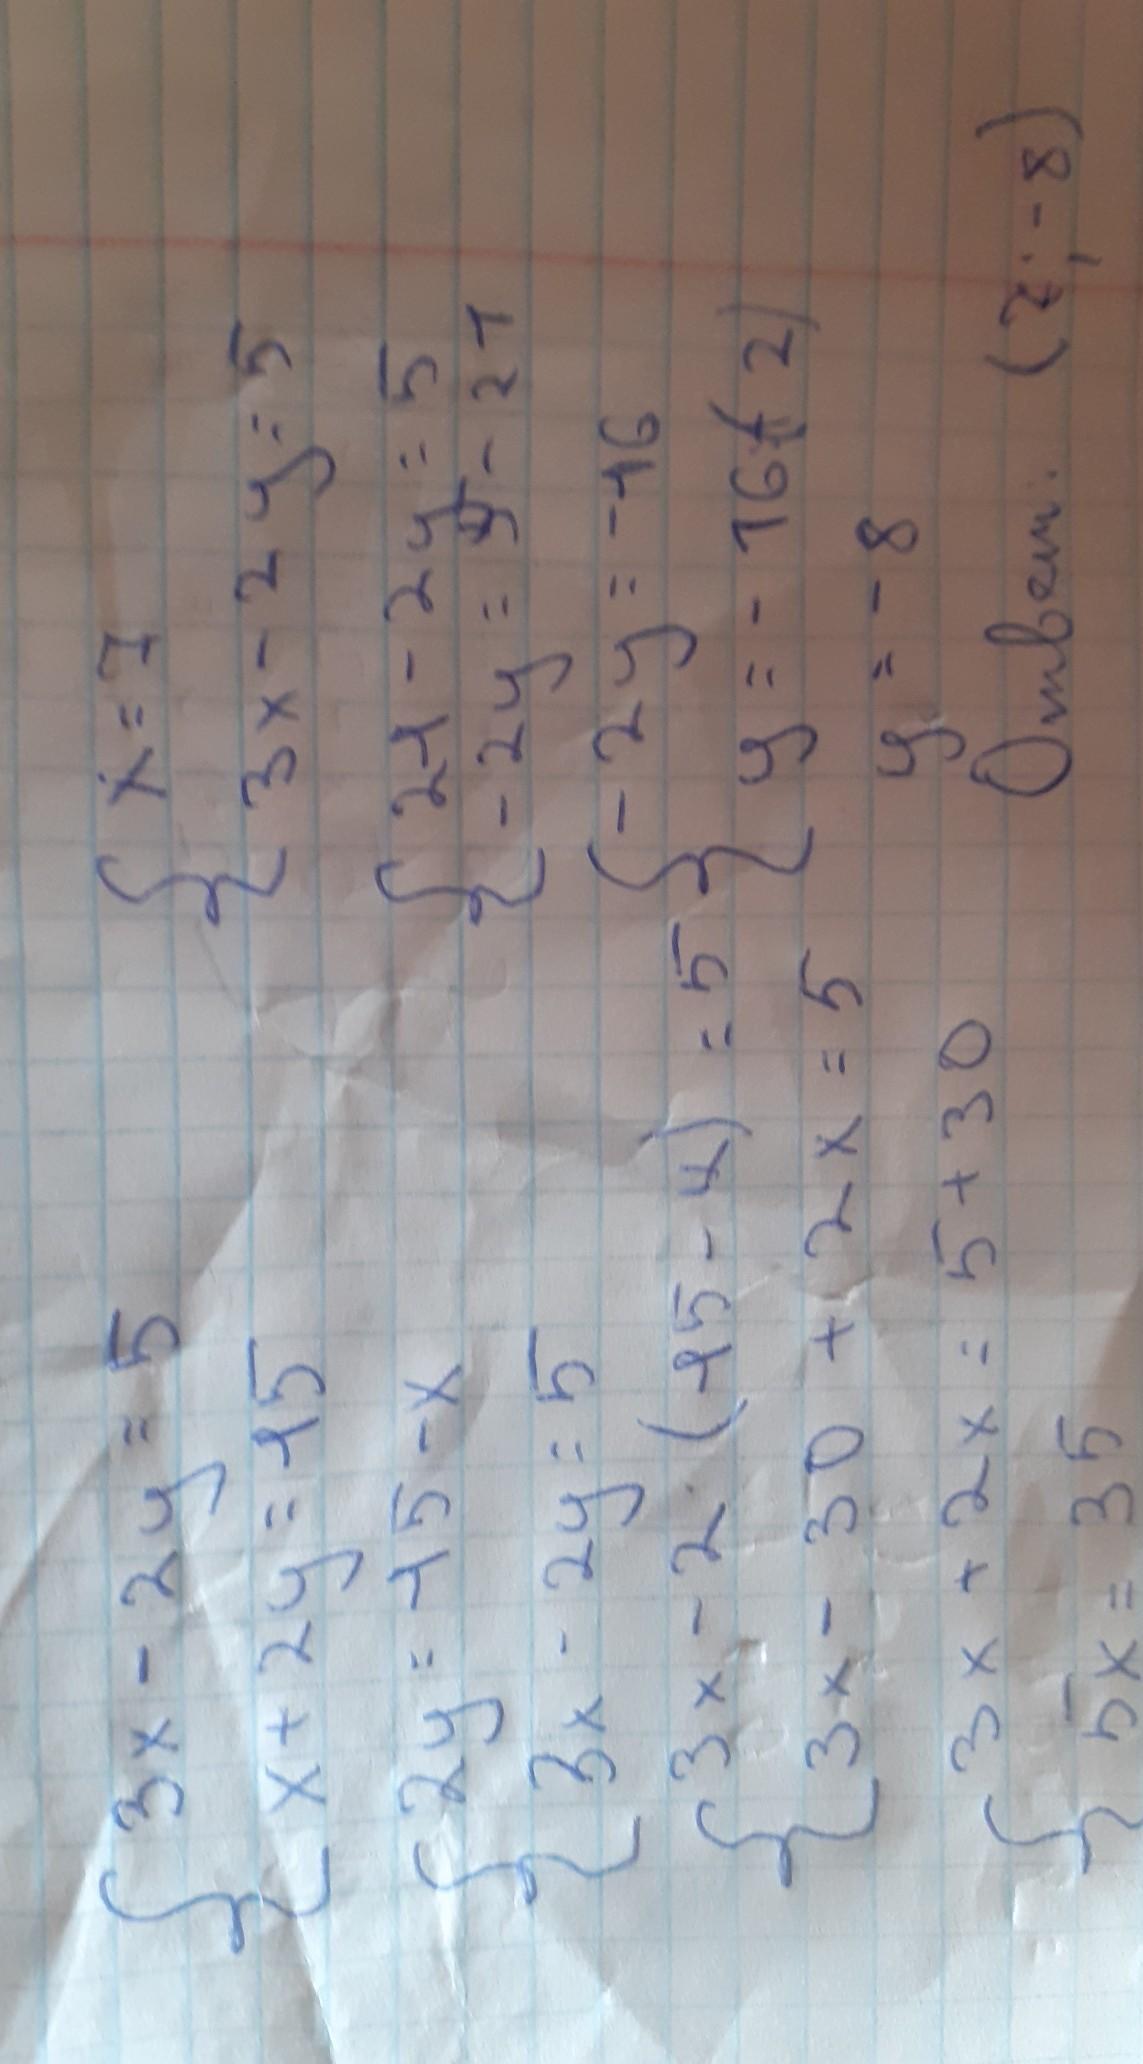 { 3x - 2y = 5
x + 2y = 15
{ 2y = 15 - x
3x - 2y = 5
{ 3x - 2 · (15 - x) = 5
3x - 30 + 2x = 5
{ 3x + 2x = 5 + 30
5x = 35
{ x = 7
3x - 2y = 5
{ 21 - 2y = 5
-2y = 5 - 21
{ -2y = -16
y = -16 ( 2)
y = -8
Ответ: (7; -8)